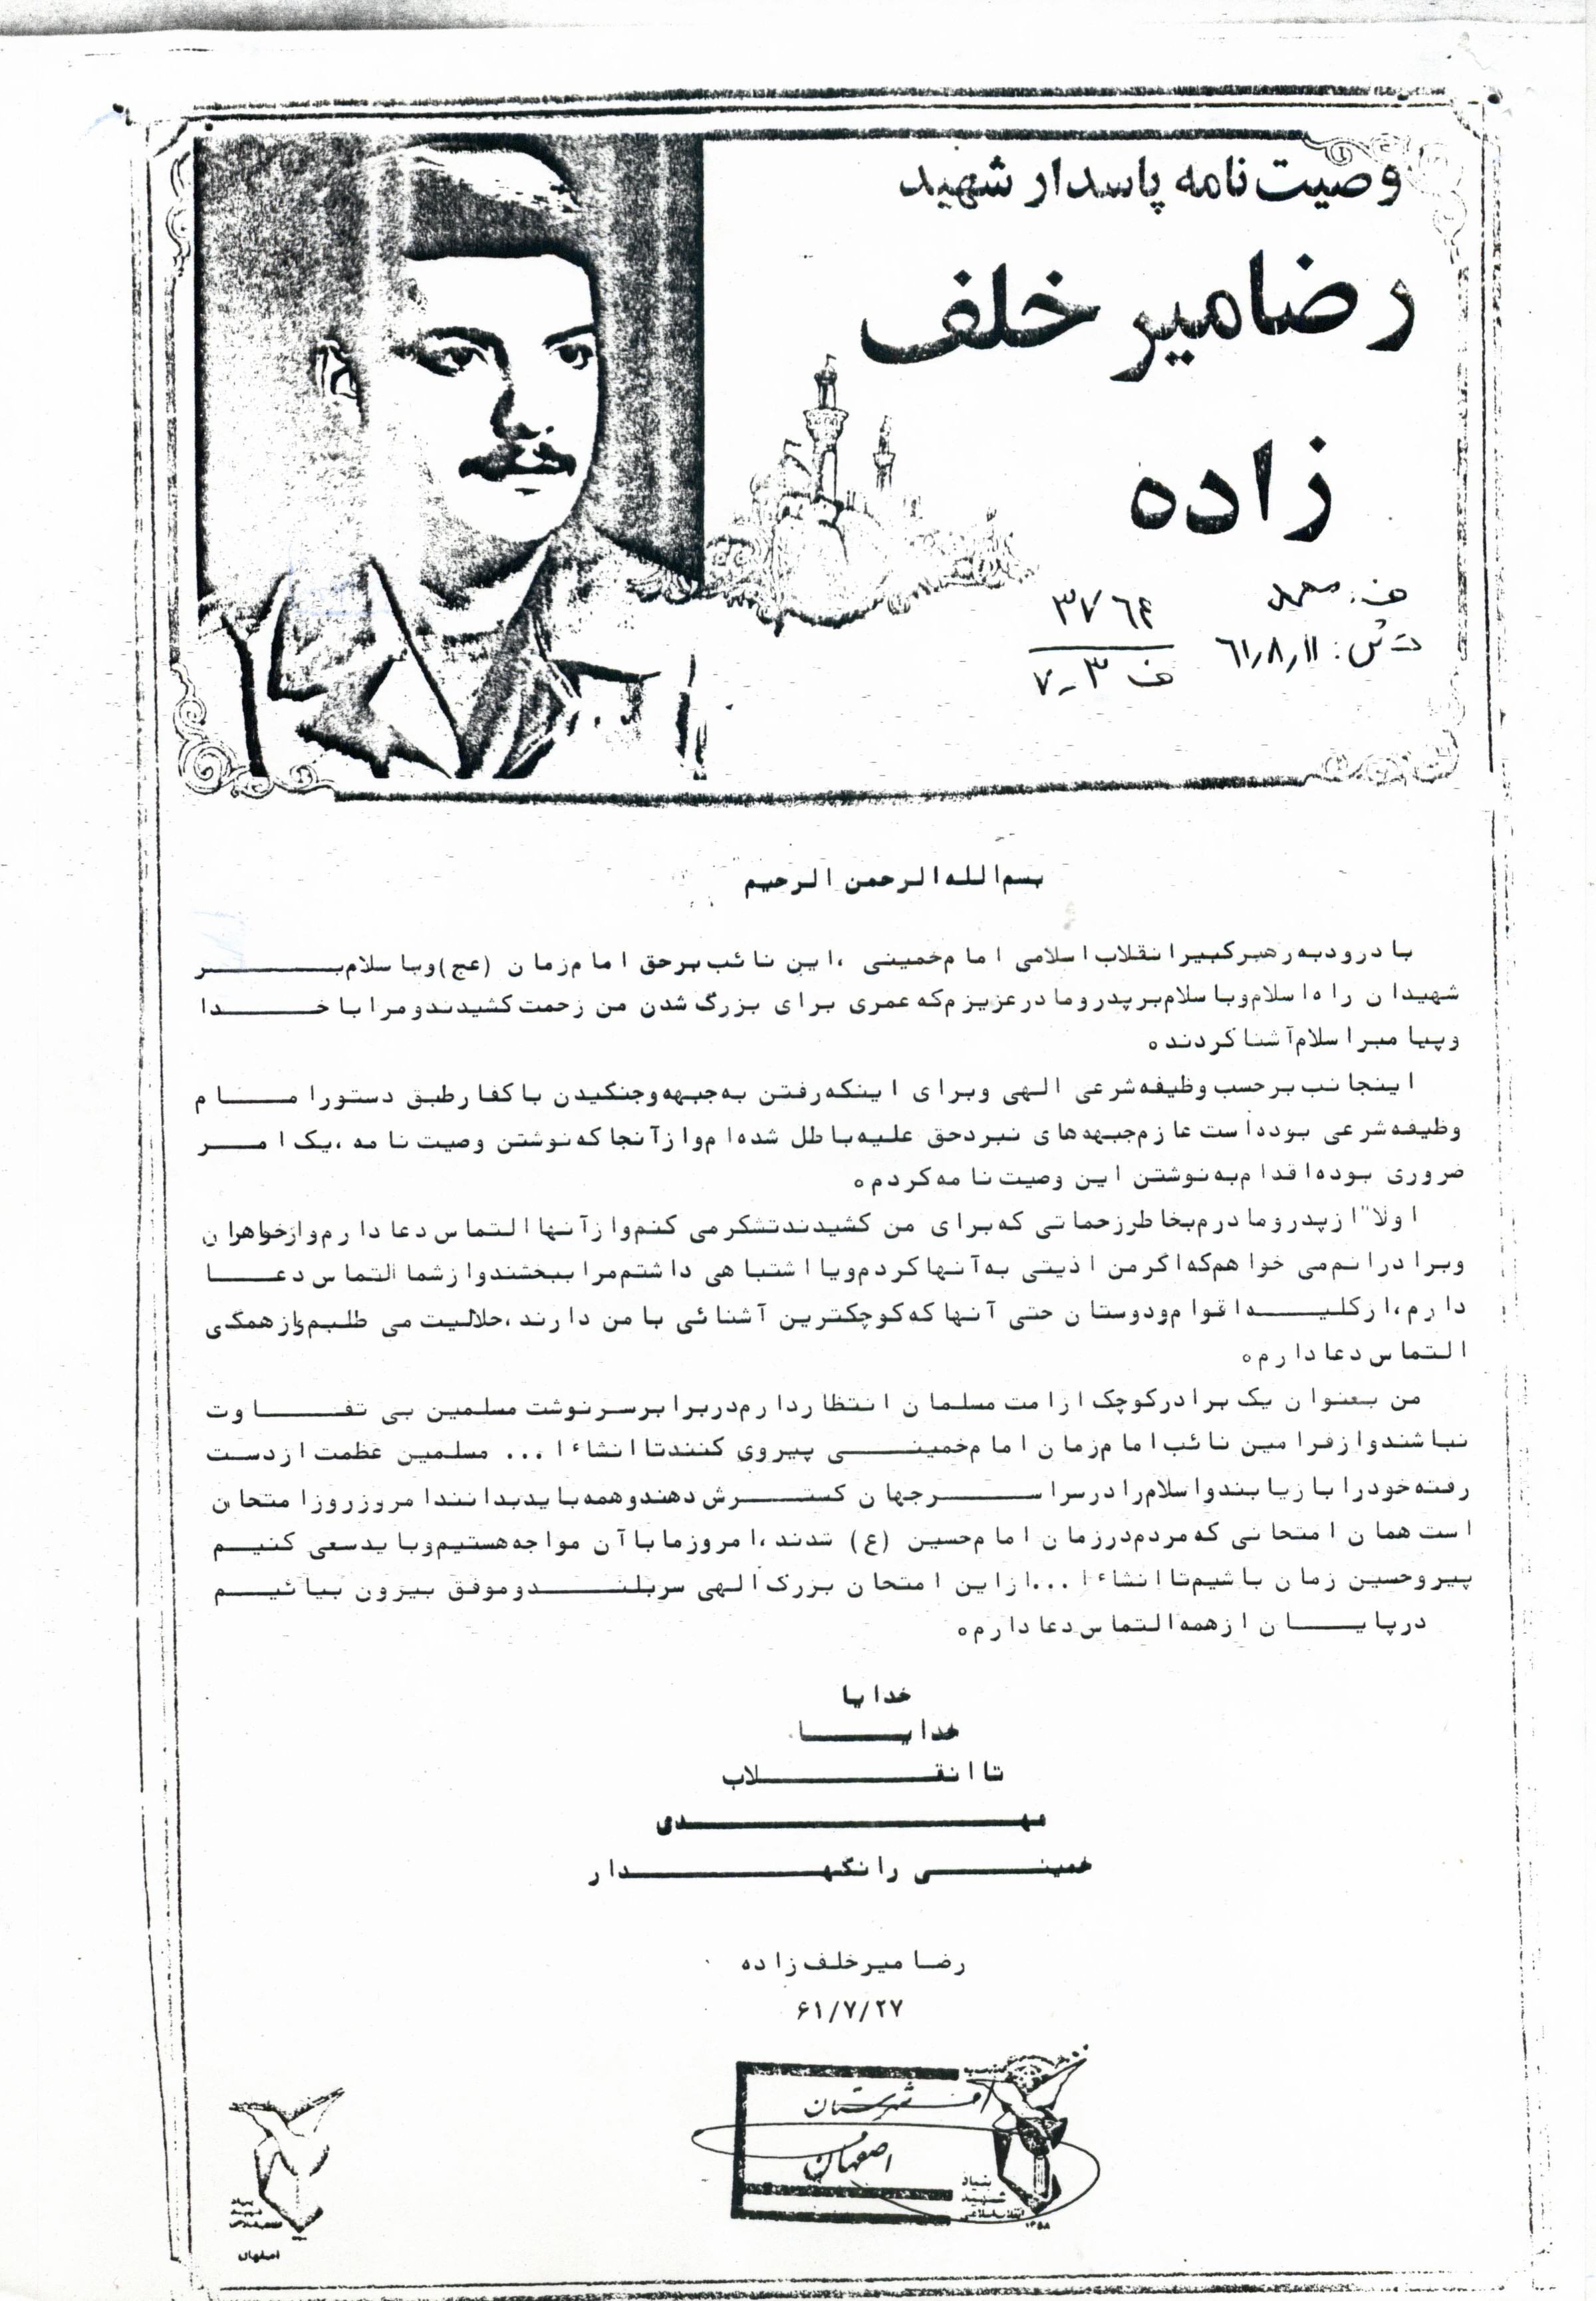 وصیت‌نامه پاسدار شهید
رضا میر خلف
زاده
ف: محمد
ت ش: ۶۱٫۸٫۱۱
۳۷۶۴
ف ۳-۷
بسم الله الرحمن الرحیم
با درود به رهبر کبیر انقلاب اسلامی امام خمینی ، این نائب برحق امام زمان (عج) وبا سلام بر
شهیدان راه اسلام وبا سلام بر پدر و مادر عزیزم که عمری برای بزرگ شدن من زحمت کشیدند و مرا با خدا
و پیامبر اسلام آشنا کردند.
اینجانب بر حسب وظیفه شرعی الهی وبرای اینکه رفتن به جبهه و جنگیدن با کفار طبق دستور امام
وظیفه شرعی بوده است عازم جبهه های نبرد حق علیه باطل شده ام و از آنجا که نوشتن وصیت نامه ، یک امر
ضروری بوده اقدام به نوشتن این وصیت نامه کردم.
اولا" از پدر و مادرم بخاطر زحماتی که برای من کشیدند تشکر می کنم و از آنها التماس دعا دارم و از خواهران
وبرادرانم می خواهم که اگر من اذیتی به آنها کردم و یا اشتباهی داشتم مرا ببخشند و از شما التماس دعا
دارم ، از کلیه اقوام و دوستان حتی آنها که کوچکترین آشنائی با من دارند ، حلالیت می طلبم و از همگی
التماس دعا دارم.
من بعنوان یک برادر کوچک از امت مسلمان انتظار دارم در برابر سرنوشت مسلمین بی تفاوت
نباشند و از فرامین نائب امام زمان امام خمینی پیروی کنند تا انشاءا ... مسلمین عظمت از دست
رفته خود را بازیابند و اسلام را در سراسر جهان گسترش دهند و همه باید بدانند امروز روز امتحان
است همان امتحانی که مردم در زمان امام حسین (ع) شدند ، امروز ما با آن مواجه هستیم و باید سعی کنیم
پیرو حسین زمان باشیم تا انشاءا ... از این امتحان بزرگ الهی سربلند و موفق بیرون بیائیم
در پایان از همه التماس دعا دارم.
خدایا
خدایا
تا انقلاب
مهدی
خمینی را نگهدار
رضا میر خلف زاده
۶۱/۷/۲۷
شهرستان
اصفهان
بنیاد
شهید
انقلاب اسلامی
۱۳۵۸
بنیاد
شهید
اصفهان